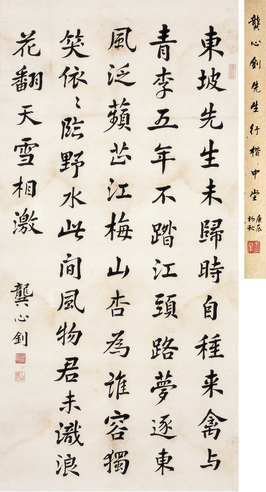 龔心釗先生行楷中堂
庚辰
東坡先生未歸時自種来禽与
青李五年不踏江頭路夢逐東
風泛蘋芷江梅山杏為誰容獨
笑依〻臨野水此間風物君未識浪
花翻天雪相激
龔心釗